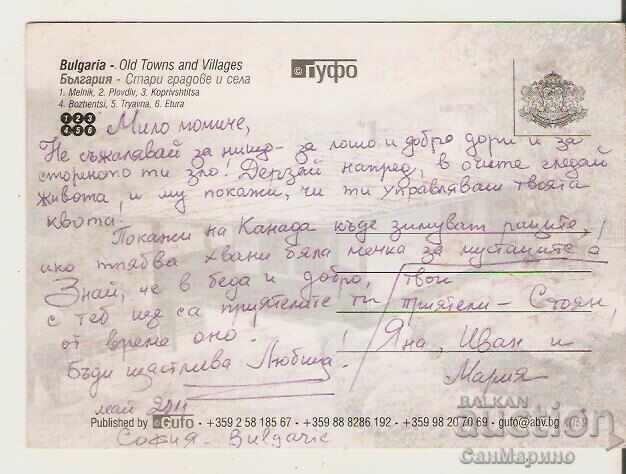 Bulgaria - Old Towns and Villages
България - Стари градове и села
1. Melnik, 2. Plovdiv, 3. Koprivshtitsa
4. Bozhentsi, 5. Tryavna, 6. Etura
1 2 3
4 5 6
© гуфо
Мило момиче,
Не съжалявай за нищо - за лошо и добро дори и за
стореното ти зло! Дерзай напред, в очите гледай
живота, и му покажи, чи ти управляваш твоята
квота.
Покажи на Канада къде зимуват раците,
ико трябва хвани бяла мечка за мустаците
Знай, че в беда и добро,
с теб ще са приятелите ти
от време оно!
Бъди щастлива Любима.
твои
приятели - Стоян,
Яна, Иван и
Мария
май 2011
София - Bulgaria
Published by Gufo - +359 2 58 185 67 - +359 88 8286 192 - +359 98 20 70 69 - gufo@abv.bg
BALKAN
auction
СанМарино